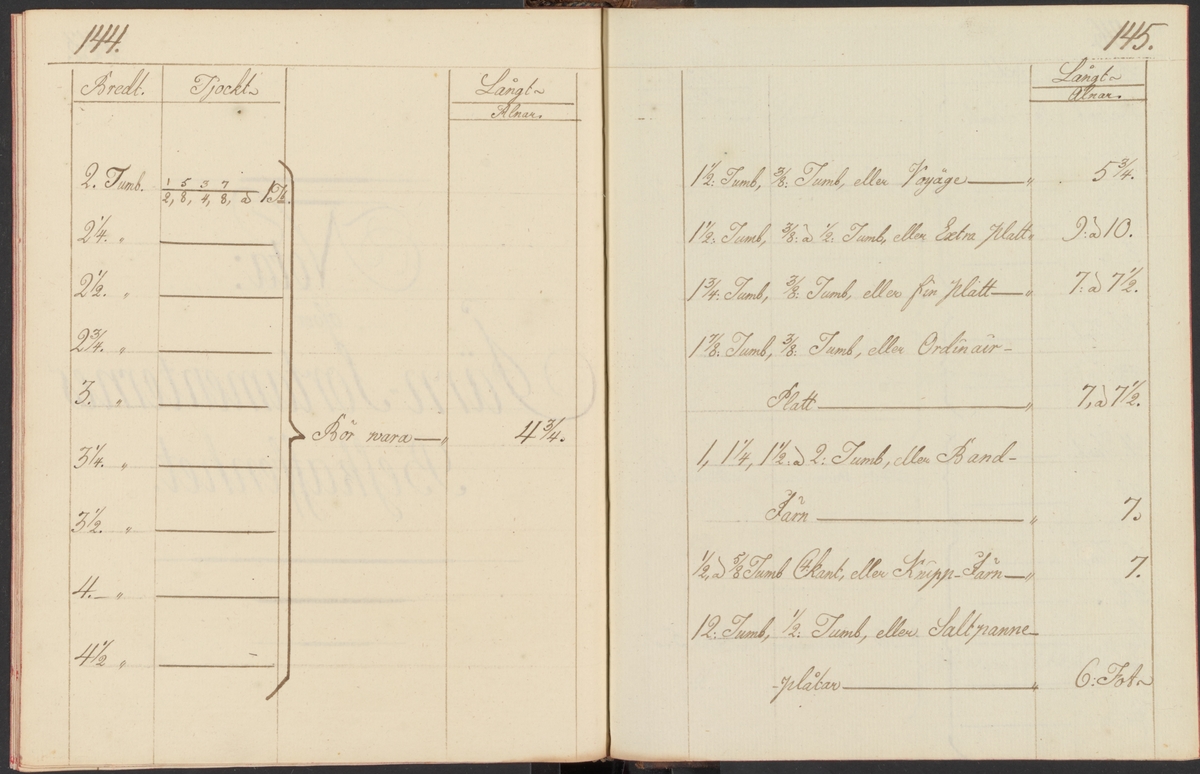 144.
Bredt. Tjockt Långt
Alnar.
2. Tumb. 1/2, 5/8, 3/4, 7/8, à 1 T.
2 1/4. "
2 1/2. "
2 3/4. "
3. "
3 1/4. "
3 1/2. "
4. "
4 1/2 "
Bör wara " 4 3/4.
145.
Långt
Alnar.
1 1/2: Tumb, 3/8: Tumb, eller Voyäge " 5 3/4.
1 1/2: Tumb, 3/8: à 1/2: Tumb, eller Extra platt " 9: à 10.
1 3/4: Tumb, 3/8: Tumb, eller fin platt " 7: à 7 1/2.
1 7/8: Tumb, 3/8: Tumb, eller Ordinair-
Platt " 7, à 7 1/2.
1, 1 1/4, 1 1/2: à 2: Tumb, eller Band-
Järn " 7.
1/2, à 5/8 Tumb kant, eller Knipp-Järn " 7.
12: Tumb, 1/2: Tumb, eller Saltpanne-
-plåtar " 6: Fot